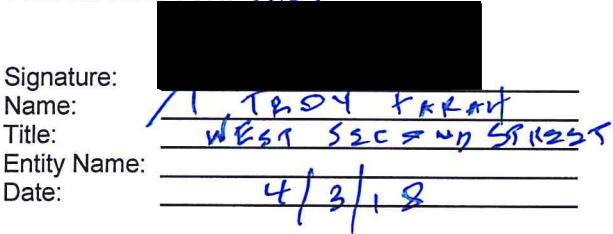 Signature:
Name: TROY FARAH
Title: WEST SECOND STREET
Entity Name:
Date: 4/3/18